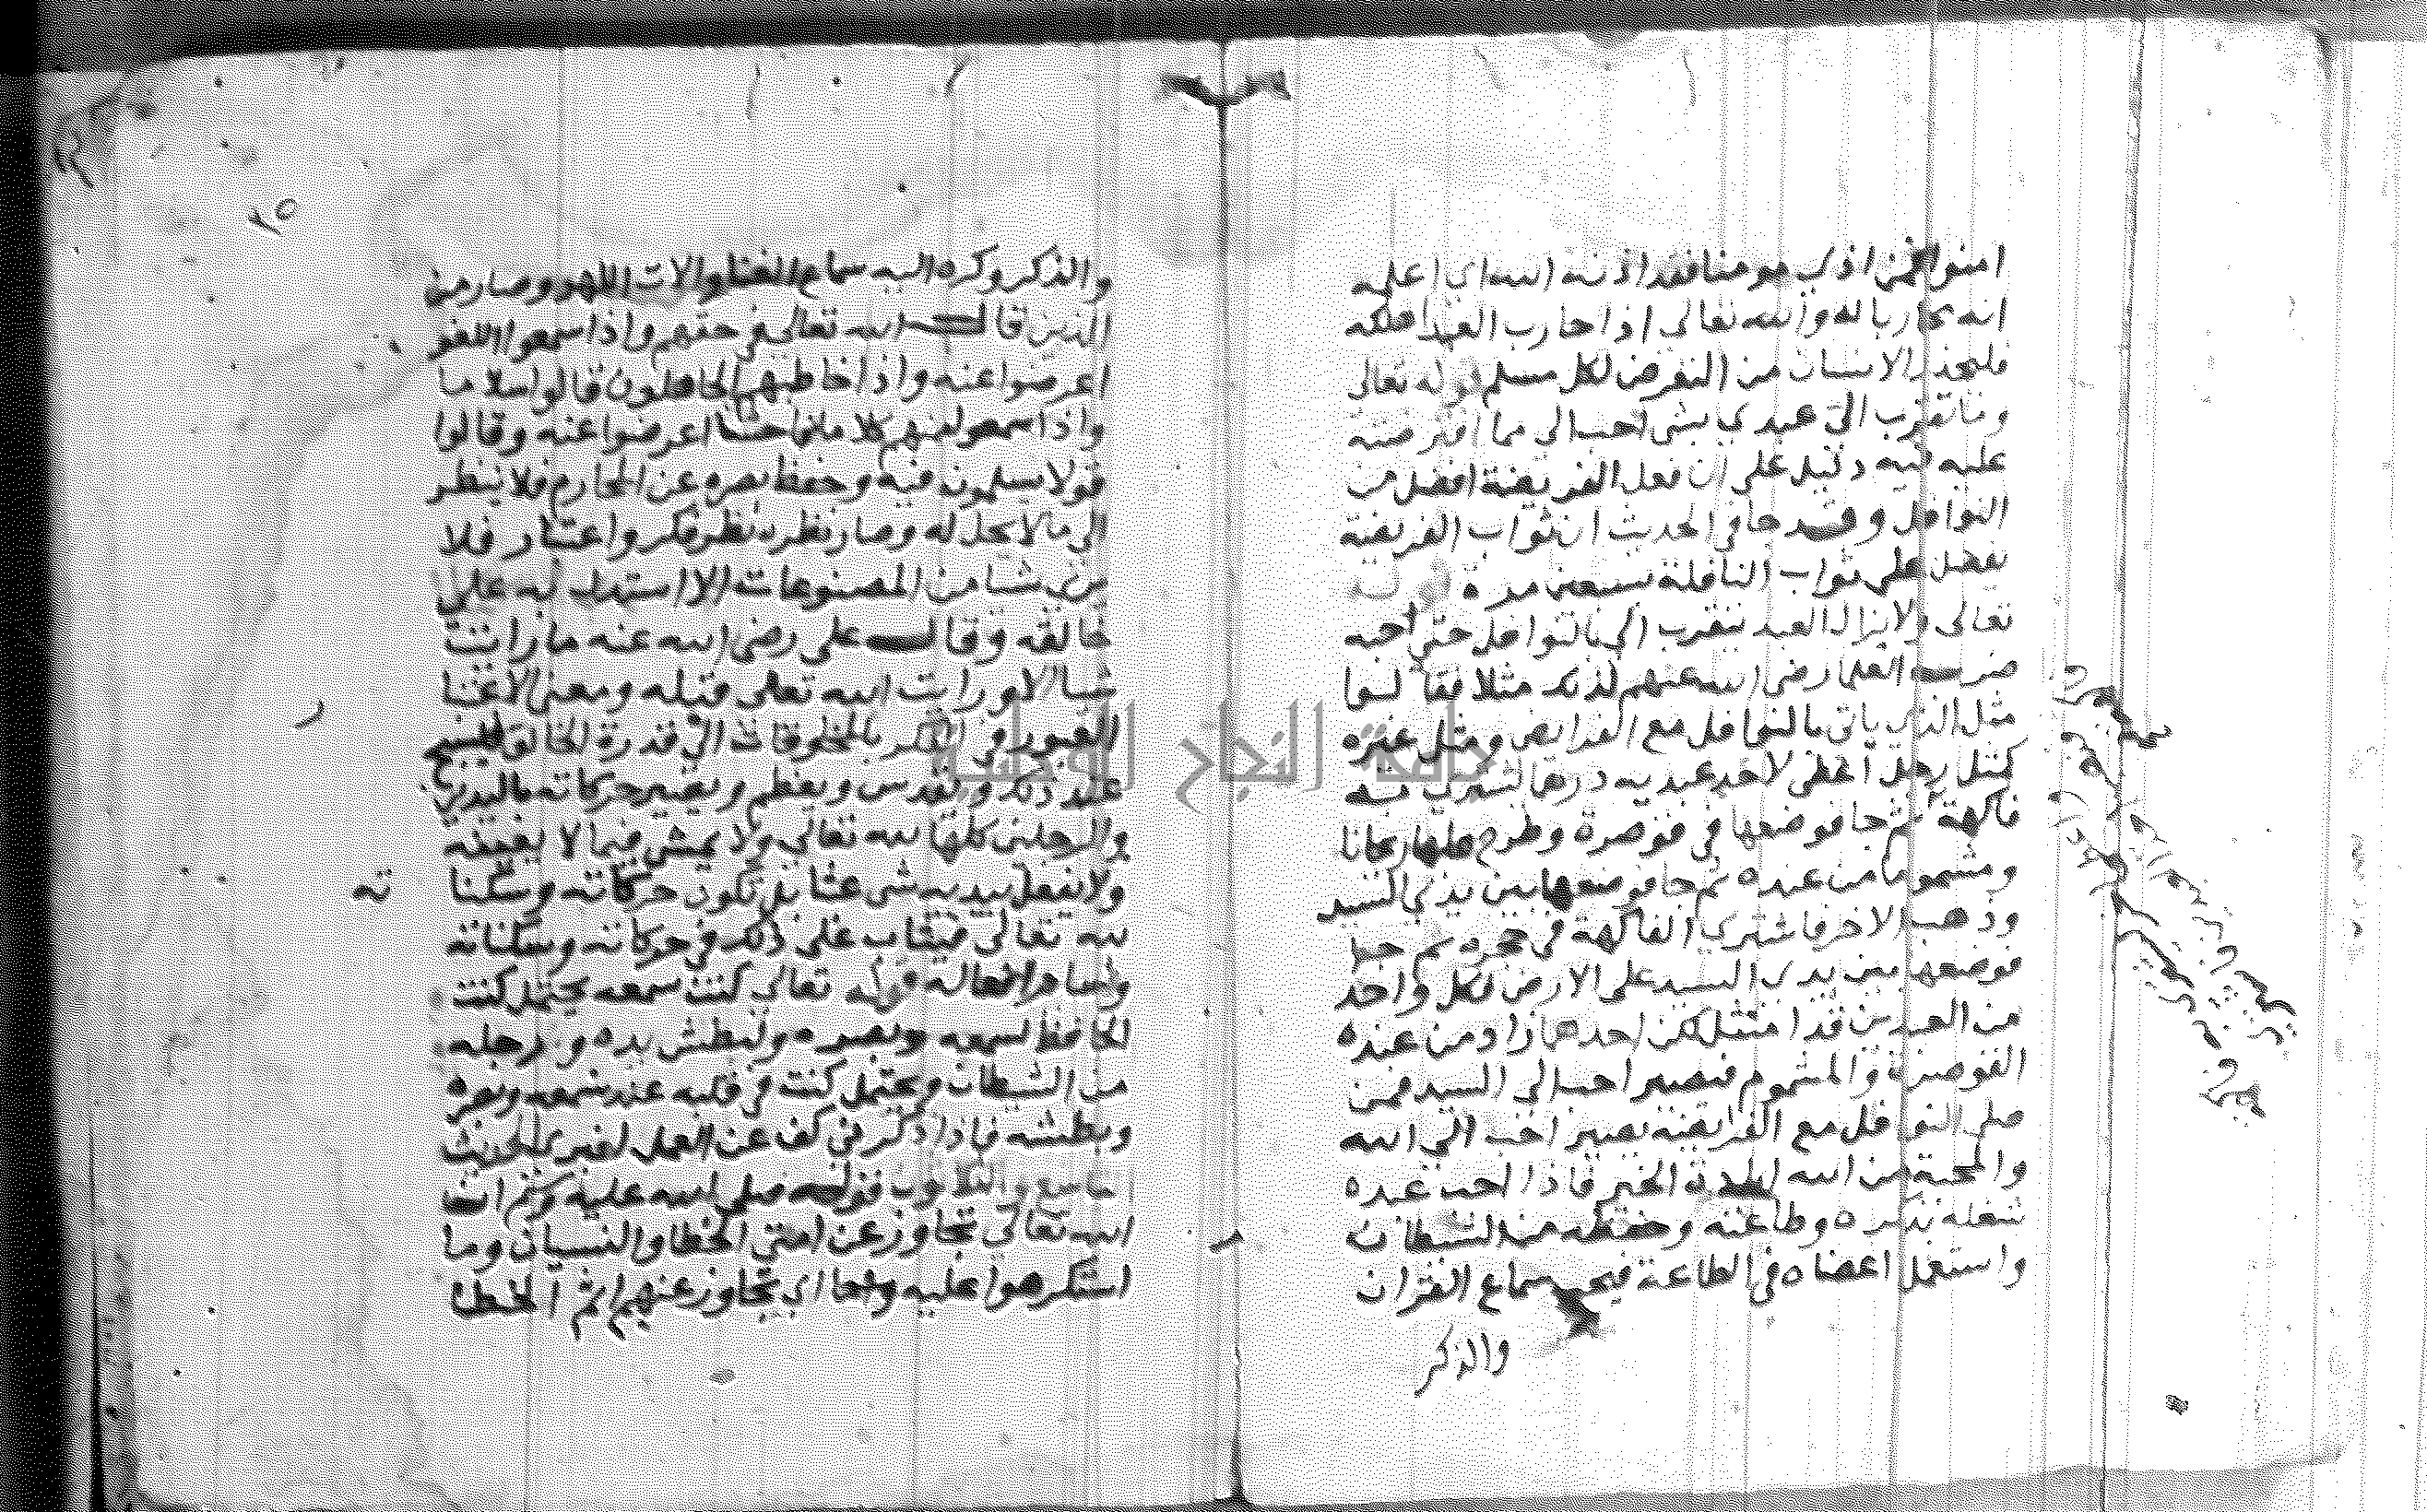 امنوا فمن اذى مومنا فقد اذنه الله اي اعلمه
انه محاربا له والله تعالى اذا حارب العبد اهلكه
فليحذر الانسان من التعرض لكل مسلم قوله تعالى
وما تقرب الي عبدي بشي احب الي مما افترضته
عليه فيه دليل على ان فعل الفريضة افضل من
النوافل وقد جا في الحديث ان ثواب الفريضة
يفضل على ثواب النافلة بسبعين مرة قوله
تعالى ولا يزال العبد يتقرب الي بالنوافل حتى احبه
ضرب العلما رضي الله عنهم لذلك مثلا فقالوا
مثل الذي ياتي بالنوافل مع الفرايض ومثل غيره
كمثل رجل اعطى لاحد عبديه درهما ليشتري به
فاكهة ثم جا فوضعها في قوصرة وطرح عليها ريحانا
ومشموما من عنده ثم جا فوضعها بين يدي السيد
وذهب الاخر فاشترى الفاكهة في حجره ثم جا
فوضعها بين يدي السيد على الارض فكل واحد
من العبدين قد امتثل لكن احدهما زاد من عنده
القوصرة والمشموم فيصير احب الى السيد فمن
صلى النوافل مع الفرايضه يصير احب الى الله
والمحبة من الله ارادة الخير فاذا احب عبده
شغله بذكره وطاعته وحفظه من الشيطان
واستعمل اعضاه في الطاعة فيحب سماع القران
والذكر
٢٥
والذكر وكره اليه سماع الغنا والات اللهو وصار من
الذين قال الله تعالى في حقهم واذا سمعوا اللغو
اعرضوا عنه واذا خاطبهم الجاهلون قالوا سلاما
واذا سمعوا منهم كلاما فاحشا اعرضوا عنه وقالوا
قولا يسلمون فيه وحفظ بصره عن المحارم فلا ينظر
الى ما لا يحل له وصار نظره نظر فكر واعتبار فلا
يرى شيا من المصنوعات الا استدل به على
خالقه وقال علي رضي الله عنه ما رايت
شيا الا ورايت الله تعالى قبله ومعنى الاعتبار
العبور في الفكر بالمخلوقات الى قدرة الخالق فيسبح
عند ذلك ويقدس ويعظم وتصير حركاته باليدين
والرجلين كلها لله تعالى ولا يمشي فيما لا يعنيه
ولا يفعل بيديه شي عبثا بل تكون حركاته وسكناته
لله تعالى فيثاب على ذلك في حركاته وسكناته
وساير افعاله قوله تعالى كنت سمعه يحتمل كنت
الحافظ لسمعه وبصره ولبطش يده ورجله
من الشيطان ويحتمل كنت في قلبه عند سمعه وبصره
وبطشه فاذا ذكرني كف عن العمل لغيري الحديث
التاسع والثلاثون قوله صلى الله عليه وسلم ان
الله تعالى تجاوز عن امتي الخطا والنسيان وما
استكرهوا عليه اي تجاوز عنهم اثم الخطا
جامعة النجاح الوطنية